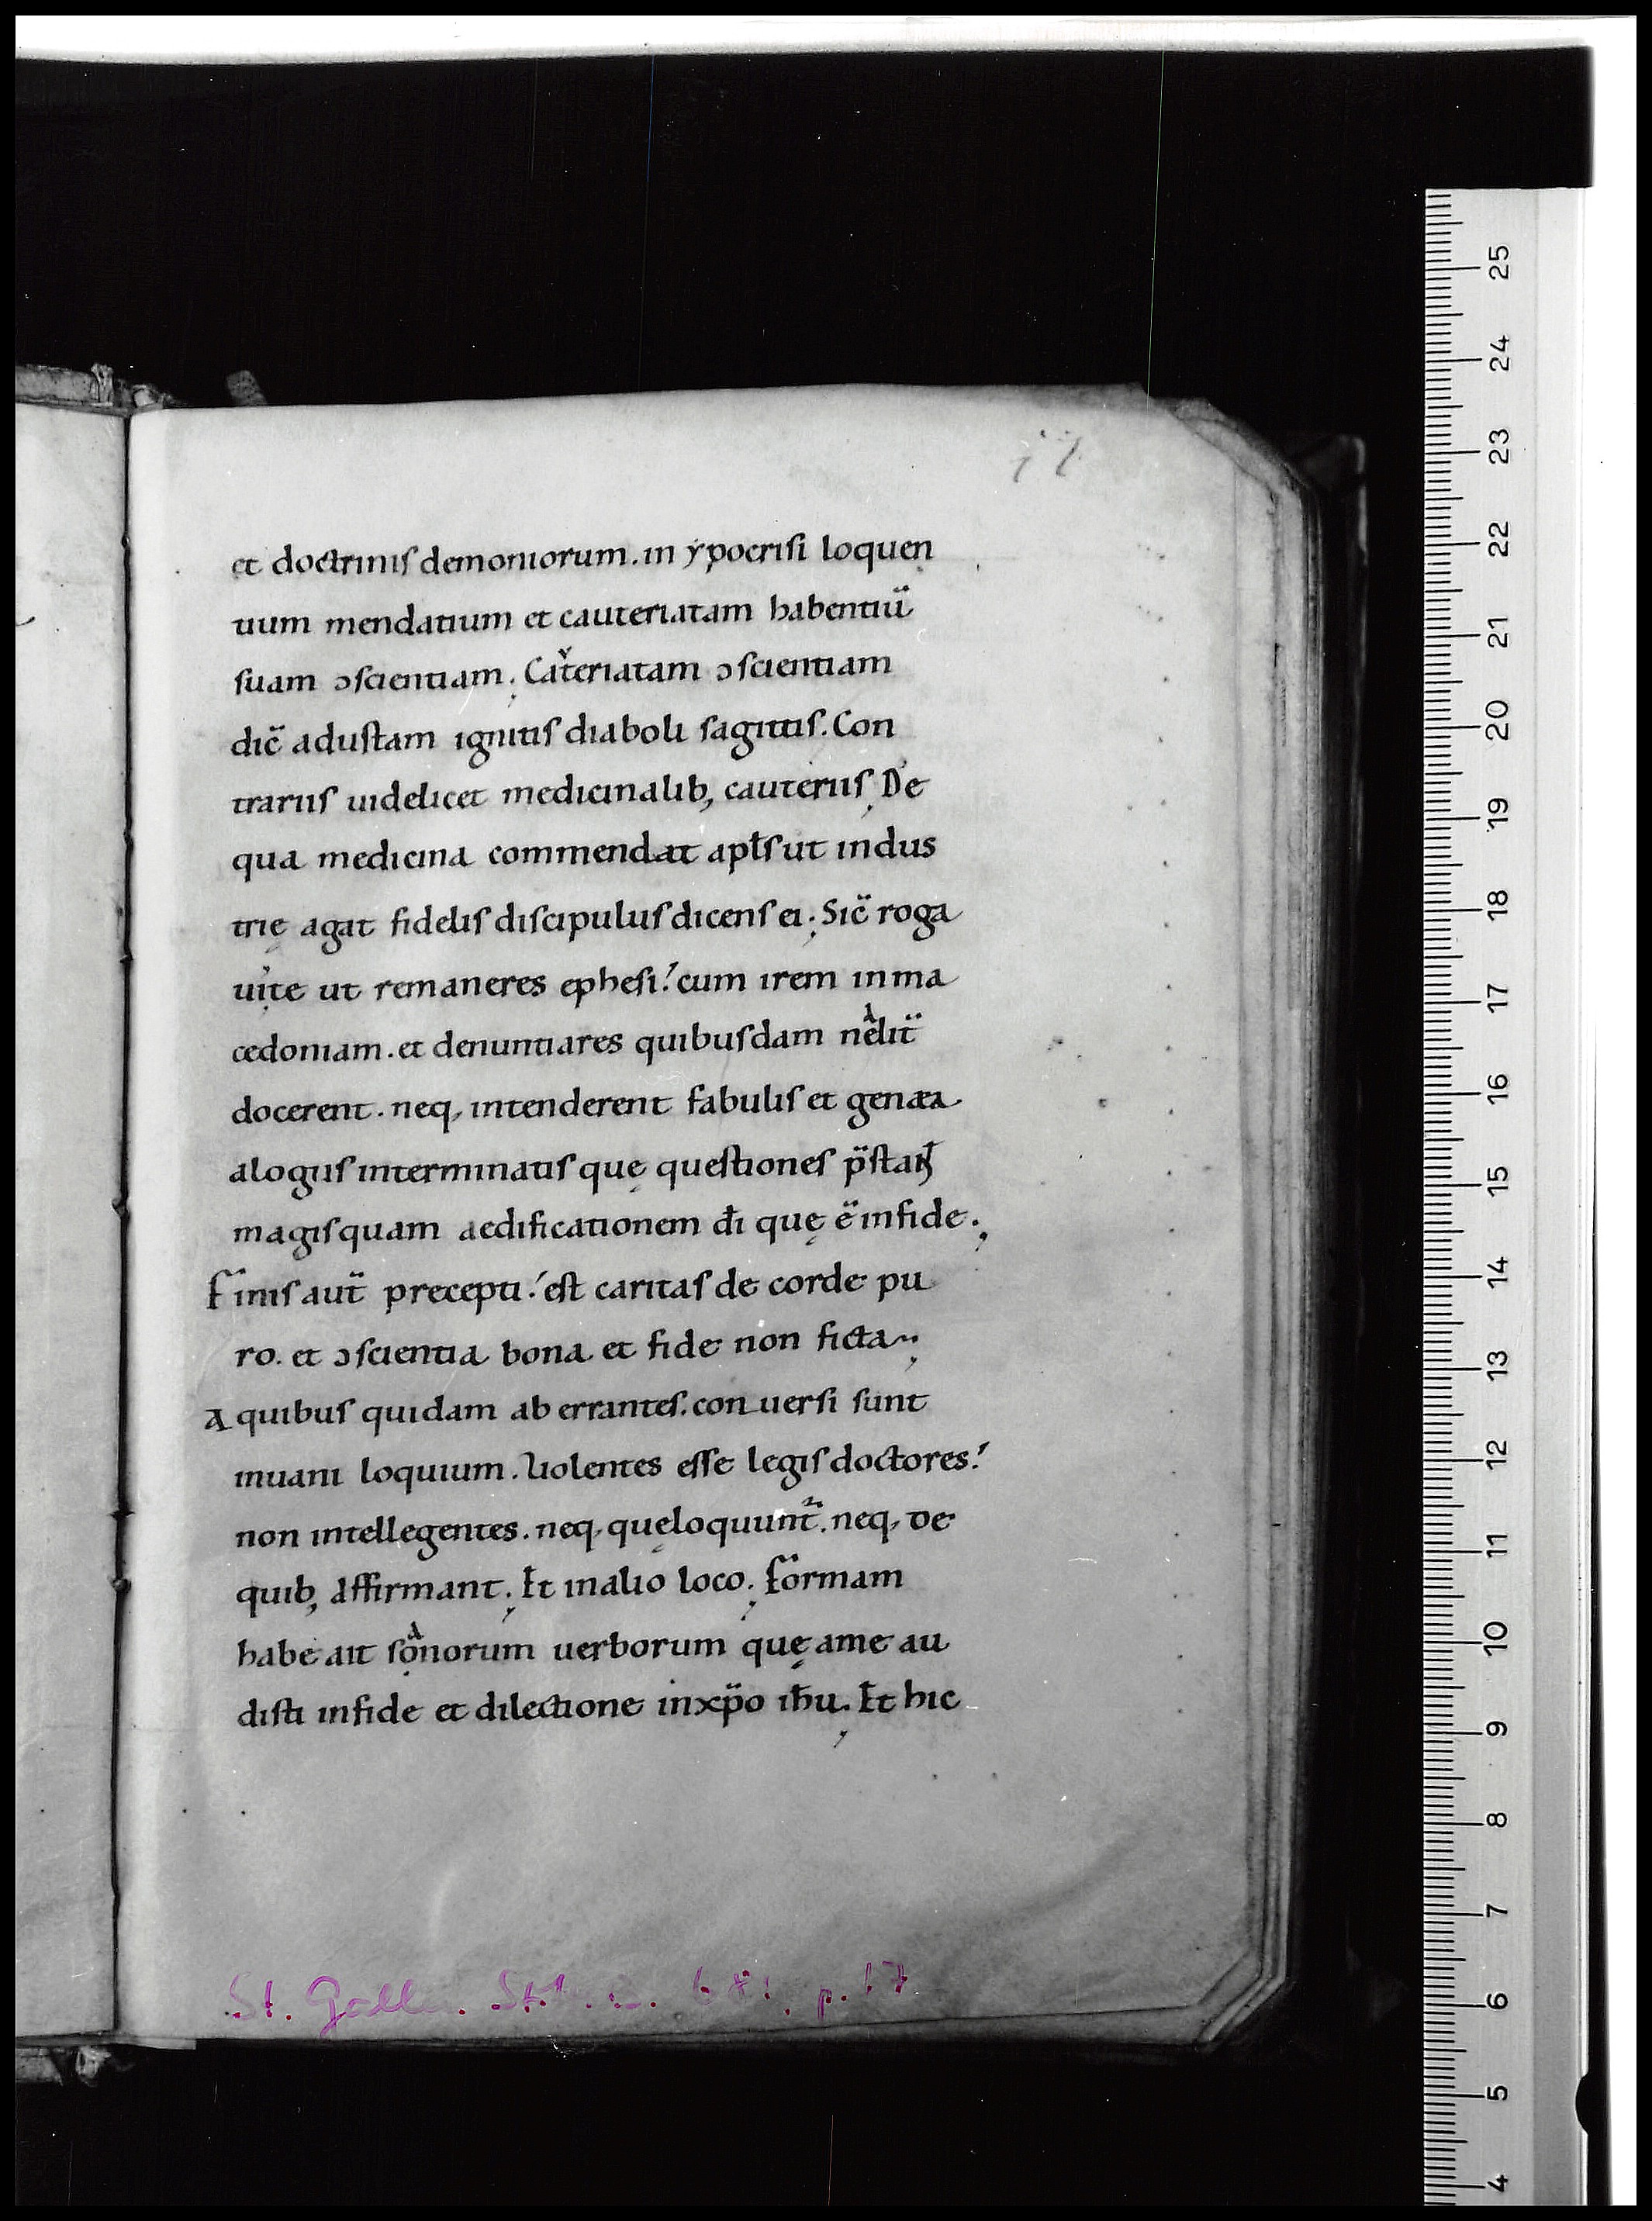 17
et doctrinis demoniorum. in ypocrisi loquen
tium mendatium et cauteriatam habentiū
suam ɔscientiam. Cauteriatam ɔscientiam
dic̄ adustam ignitis diaboli sagittis. Con
trariis uidelicet medicinalib; cauteriis. De
qua medicina commendat apl̄s ut indus
trię agat fidelis discipulus dicens ei. Sic̄ roga
ui te ut remaneres ephesi! cum irem in ma
cedoniam. et denuntiares quibusdam ne alit̄
docerent. neq; intenderent fabulis et genea
alogiis interminatis quę questiones p̄stant
magis quam aedificationem dī quę ē in fide.
Finis aut̄ precepti! est caritas de corde pu
ro. et ɔscientia bona et fide non ficta.
A quibus quidam aberrantes. conuersi sunt
in uani loquium. Uolentes esse legis doctores!
non intellegentes. neq; quę loquunt̄. neq; de
quib; affirmant. Et in alio loco. Formam
habe ait sanorum uerborum quę a me au
disti in fide et dilectione in xp̄o ih̄u. Et hic
St. Gallen. p. 17
25
24
23
22
21
20
19
18
17
16
15
14
13
12
11
10
9
8
7
6
5
4